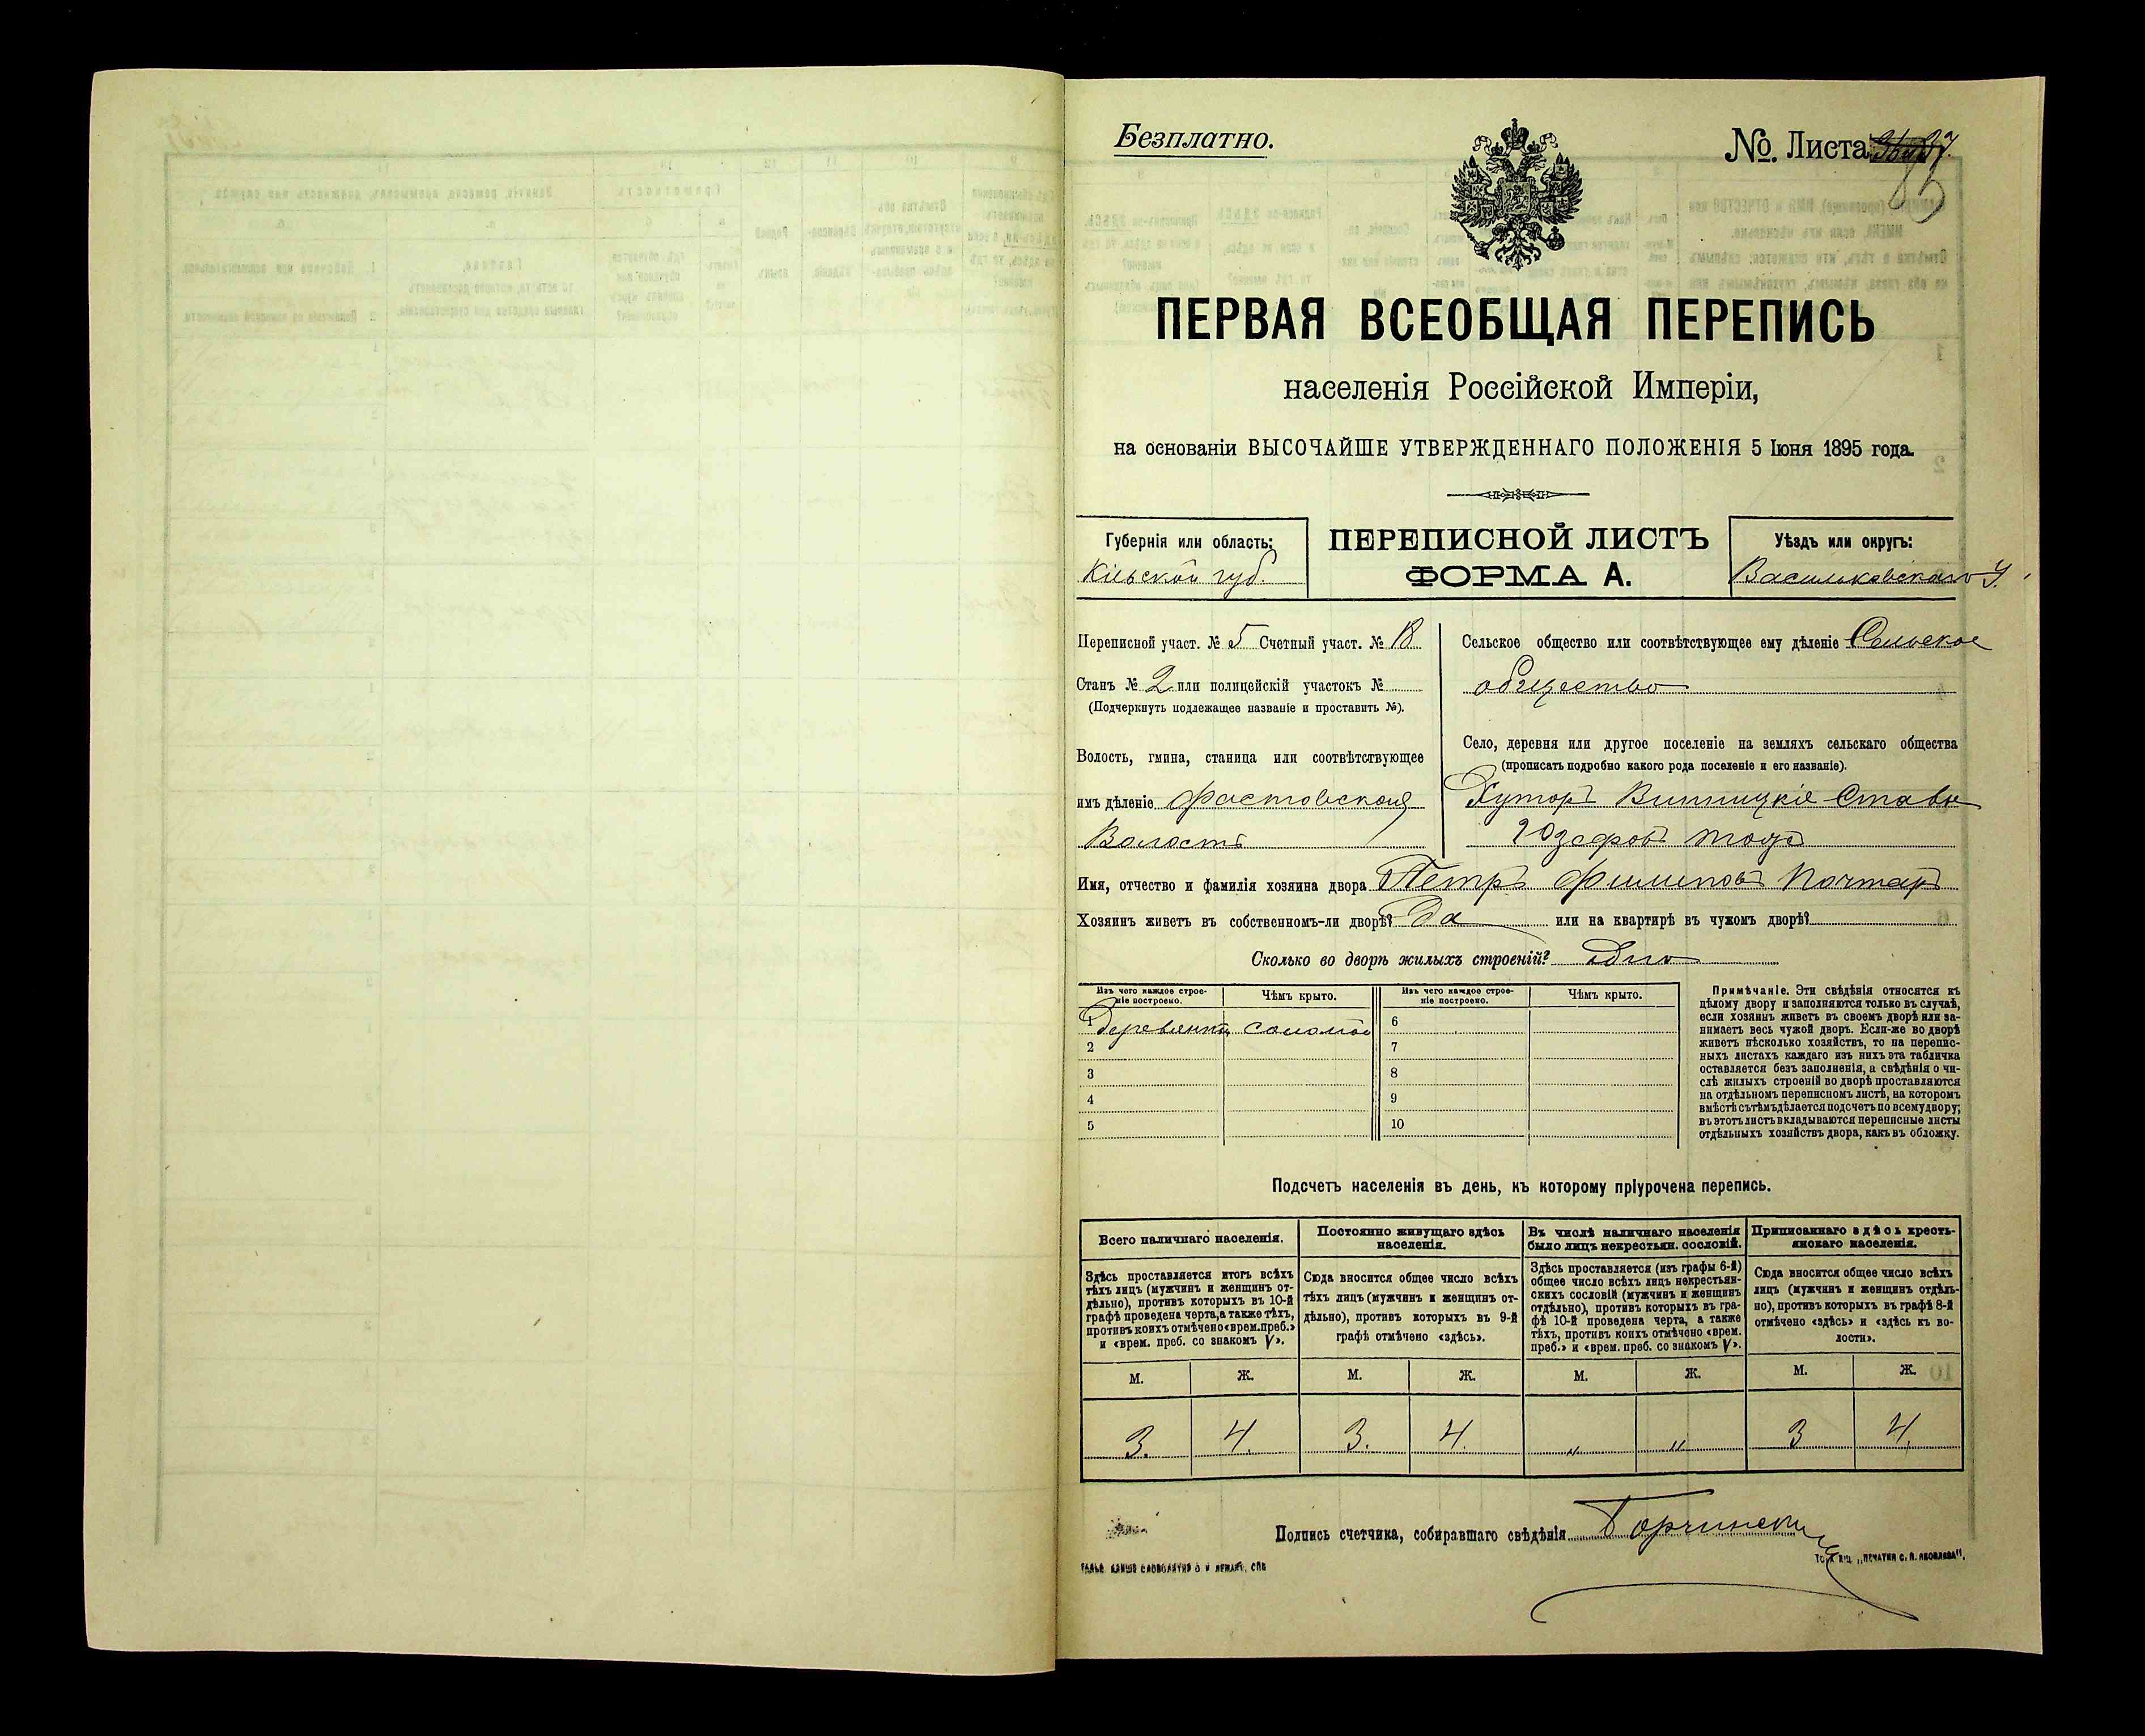 Безплатно.
№. Листа
ПЕРВАЯ ВСЕОБЩАЯ ПЕРЕПИСЬ
населенія Россійской Имперіи,
на основаніи ВЫСОЧАЙШЕ УТВЕРЖДЕННАГО ПОЛОЖЕНІЯ 5 Іюня 1895 года.
Губернія или область:
Кіевской губ.
ПЕРЕПИСНОЙ ЛИСТЪ
ФОРМА А.
Уѣздъ или округъ:
Васильковскаго У.
Переписной участ. № 5 Счетный участ. № 18
Станъ № 2 или полицейскій участокъ №
(Подчеркнуть подлежащее названіе и проставить №).
Волость, гмина, станица или соотвѣтствующее
имъ дѣленіе Фастовская
Волость
Сельское общество или соотвѣтствующее ему дѣленіе Сельское
общество
Село, деревня или другое поселеніе на земляхъ сельскаго общества
(прописать подробно какого рода поселеніе и его названіе).
Хуторъ Винницкіе Ставы
Юзефовка тожъ
Имя, отчество и фамилія хозяина двора Петръ Филиповъ Почтарь
Хозяинъ живетъ въ собственномъ-ли дворѣ? Да или на квартирѣ въ чужомъ дворѣ?
Сколько во дворѣ жилыхъ строеній? Одно
Изъ чего каждое строе-
ніе построено.
Чѣмъ крыто.
Изъ чего каждое строе-
ніе построено.
Чѣмъ крыто.
1 Деревянный соломою 6
2 7
3 8
4 9
5 10
Примѣчаніе. Эти свѣдѣнія относятся къ
цѣлому двору и заполняются только въ случаѣ,
если хозяинъ живетъ въ своемъ дворѣ или за-
нимаетъ весь чужой дворъ. Если-же во дворѣ
живетъ нѣсколько хозяйствъ, то на перепис-
ныхъ листахъ каждаго изъ нихъ эта табличка
оставляется безъ заполненія, а свѣдѣнія о чи-
слѣ жилыхъ строеній во дворѣ проставляются
на отдѣльномъ переписномъ листѣ, на которомъ
вмѣстѣ съ тѣмъ дѣлается подсчетъ по всему двору;
въ этотъ листъ вкладываются переписные листы
отдѣльныхъ хозяйствъ двора, какъ въ обложку.
Подсчетъ населенія въ день, къ которому пріурочена перепись.
Всего наличнаго населенія.
Здѣсь проставляется итогъ всѣхъ
тѣхъ лицъ (мужчинъ и женщинъ от-
дѣльно), противъ которыхъ въ 10-й
графѣ проведена черта, а также тѣхъ,
противъ коихъ отмѣчено «врем. преб.»
и «врем. преб. со знакомъ V».
Постоянно живущаго здѣсь
населенія.
Сюда вносится общее число всѣхъ
тѣхъ лицъ (мужчинъ и женщинъ от-
дѣльно), противъ которыхъ въ 9-й
графѣ отмѣчено «здѣсь».
Въ числѣ наличнаго населенія
было лицъ некрестьян. сословій.
Здѣсь проставляется (изъ графы 6-й)
общее число всѣхъ лицъ некрестьян-
скихъ сословій (мужчинъ и женщинъ
отдѣльно), противъ которыхъ въ гра-
фѣ 10-й проведена черта, а также
тѣхъ, противъ коихъ отмѣчено «врем.
преб.» и «врем. преб. со знакомъ V».
Приписаннаго здѣсь кресть-
янскаго населенія.
Сюда вносится общее число всѣхъ
лицъ (мужчинъ и женщинъ отдѣль-
но), противъ которыхъ въ графѣ 8-й
отмѣчено «здѣсь» и «здѣсь къ во-
лости».
М. Ж. М. Ж. М. Ж. М. Ж.
3. 4. 3. 4. „ „ 3 4.
Подпись счетчика, собиравшаго свѣдѣнія